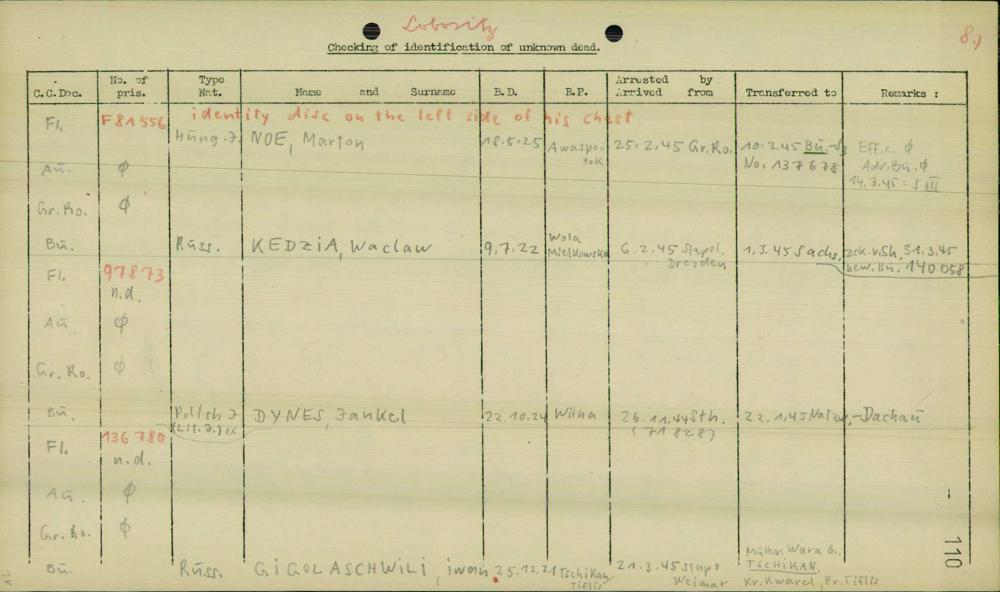 Lobositz
8.)
Checking of identification of unknown dead.
C.C.Doc. No. of pris. Type Nat. Name and Surname B.D. B.P. Arrested by Arrived from Transferred to Remarks :
identity disc on the left side of his chest
Fl. F81556 Hung. J. NOE, Marton 18.5.25 25.2.45 Gr.Ro. 10.3.45 Bu. Eff.c. ϕ
Au. ϕ No. 137678 Adr.Bu. ϕ
14.3.45 = S III
Gr.Ro. ϕ
Bu. Russ. KEDZiA, Waclaw 9.7.22 Wola Mielkowska 6.2.45 Stapol. Dresden 1.3.45 Sachs. zck.v.Sh. 31.3.45
new. Bu. 140058
Fl. 97873
n.d.
Au. ϕ
Gr. Ro. ϕ
Bu. Polish J. (Lit.J.) ex DYNES, Jankel 22.10.24 Wilna 26.11.44 Sth. (71828) 22.1.45 Natzw. -Dachau
Fl. 136780
n.d.
Au. ϕ
Gr. Ro. ϕ
Bu. Russ. GiGOLASCHWiLi, iwan 25.12.21 Tschikan Tiflis 21.3.45 Stapo Weimar Mutter: Wara G.
TSCHiKAN,
Kr. Kwarel, Br. Tiflis
110